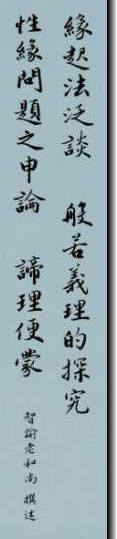 緣起法泛談 般若義理的探究
性緣問題之申論 諦理便蒙
智諭老和尚 撰述